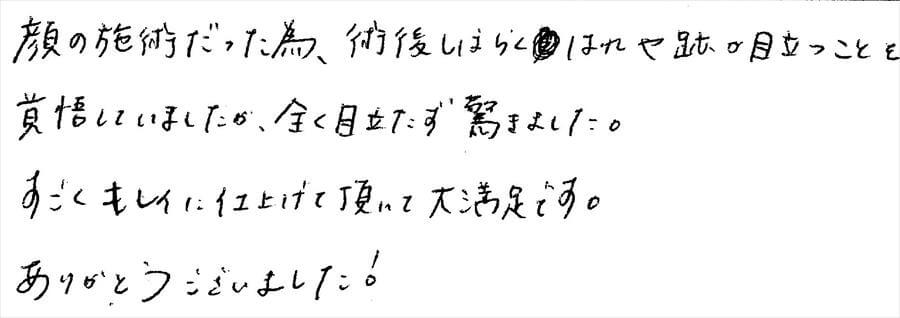 顔の施術だった為、術後しばらくはれや跡が目立つことを
覚悟していましたが、全く目立たず驚きました。
すごくキレイに仕上げて頂いて大満足です。
ありがとうございました!